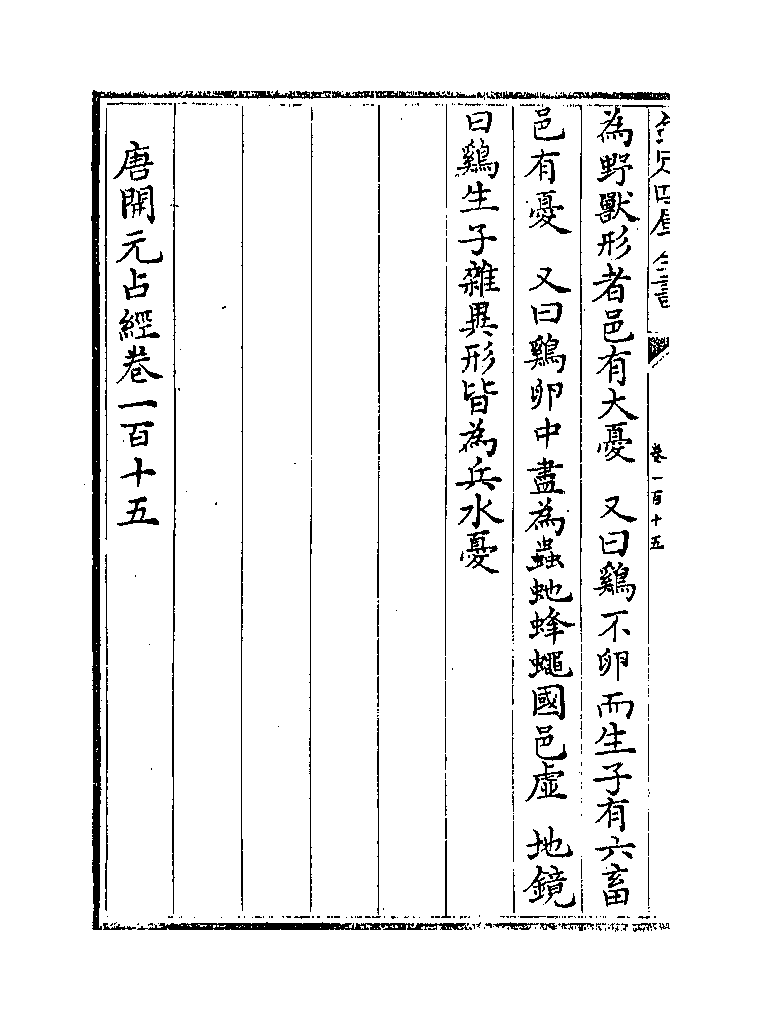 欽定四庫全書
卷一百十五
為野獸形者邑有大憂　又曰鷄不卵而生子有六畜
邑有憂　又曰鷄卵中盡為蟲虵蜂蠅國邑虛　地鏡
曰鷄生子雜異形皆為兵水憂
唐開元占經卷一百十五